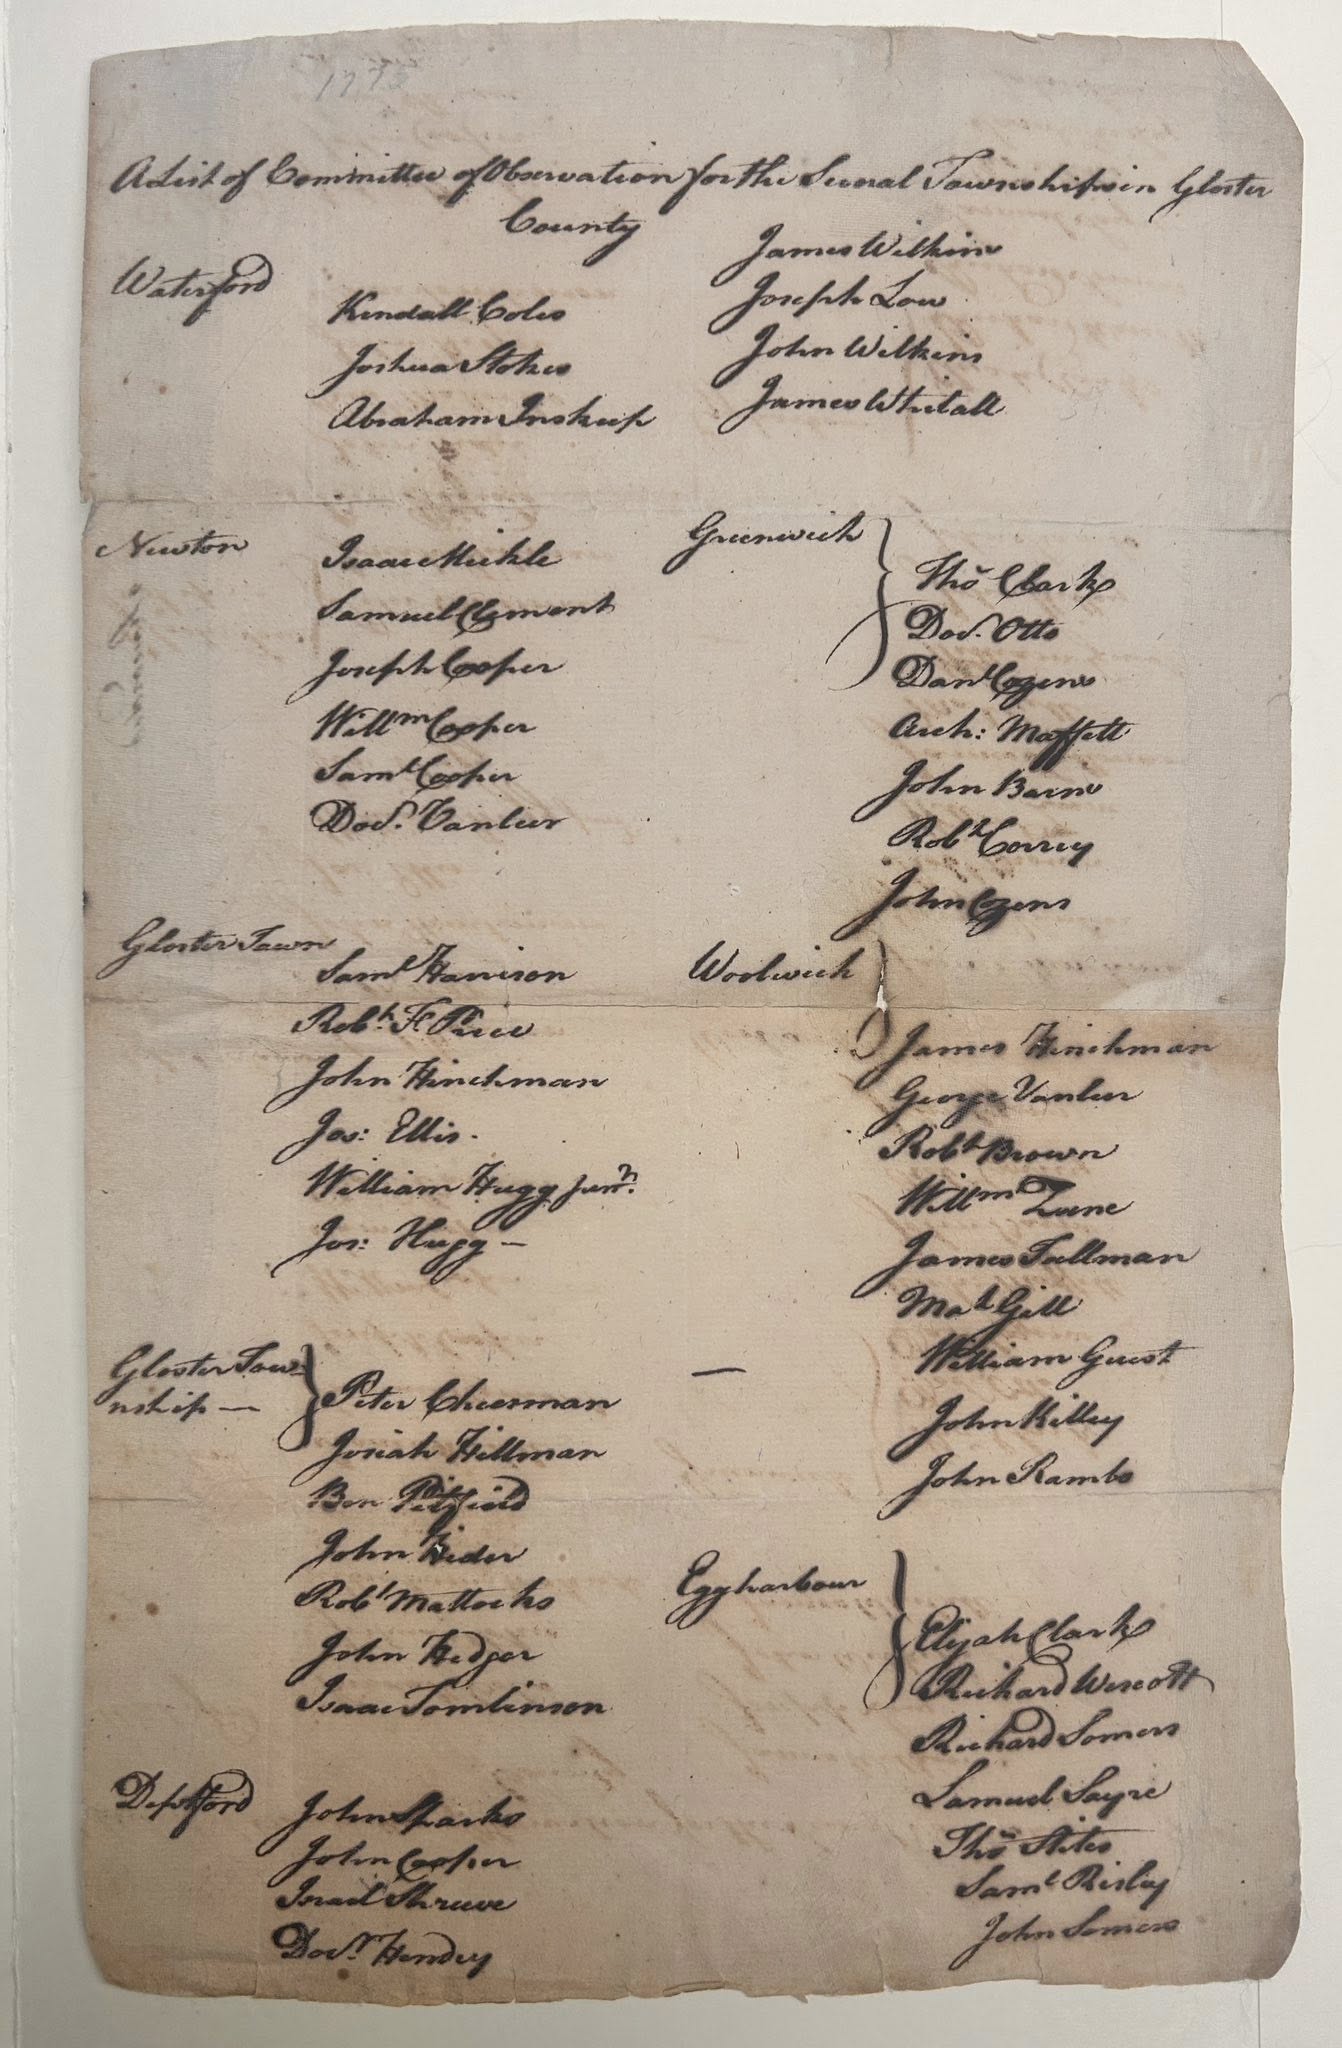 A List of Committee of Observation for the Several Townships in Gloster
County
Waterford
Kendall Coles
Joshua Stokes
Abraham Inskeep
Newton
Isaac Mickle
Samuel Clement
Joseph Cooper
Willm Cooper
Saml Cooper
Docr. Vanleer
Gloster Town
Saml Harrison
Robt. F. Price
John Hinchman
Jos: Ellis.
William Hugg junr.
Jos: Hugg —
Gloster Tow-
nship —
Peter Cheesman
Josiah Hillman
Ben Pitfield
John Hider
Robt Mattocks
John Hedger
Isaac Tomlinson
Deptford
John Sparks
John Cooper
Israel Shreeve
Docr. Hendry
James Wilkins
Joseph Low
John Wilkins
James Whitall
Greenwich
Thos Clark
Docr. Otto
Danl Cozens
Arch: Maffett
John Barns
Robt Correy
John Cozens
Woolwich
James Hinchman
George Vanleer
Robt Brown
Willm Zane
James Tallman
Mat Gill
William Guest
John Killey
John Rambo
Eggharbour
Elijah Clark
Richard Wescott
Richard Somers
Samuel Sayre
Thos Stites
Saml Risley
John Somers